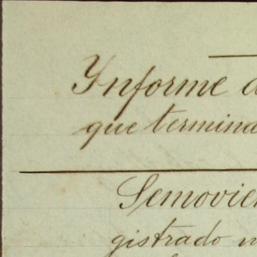 Informe d
que termina
Semovien
gistrado